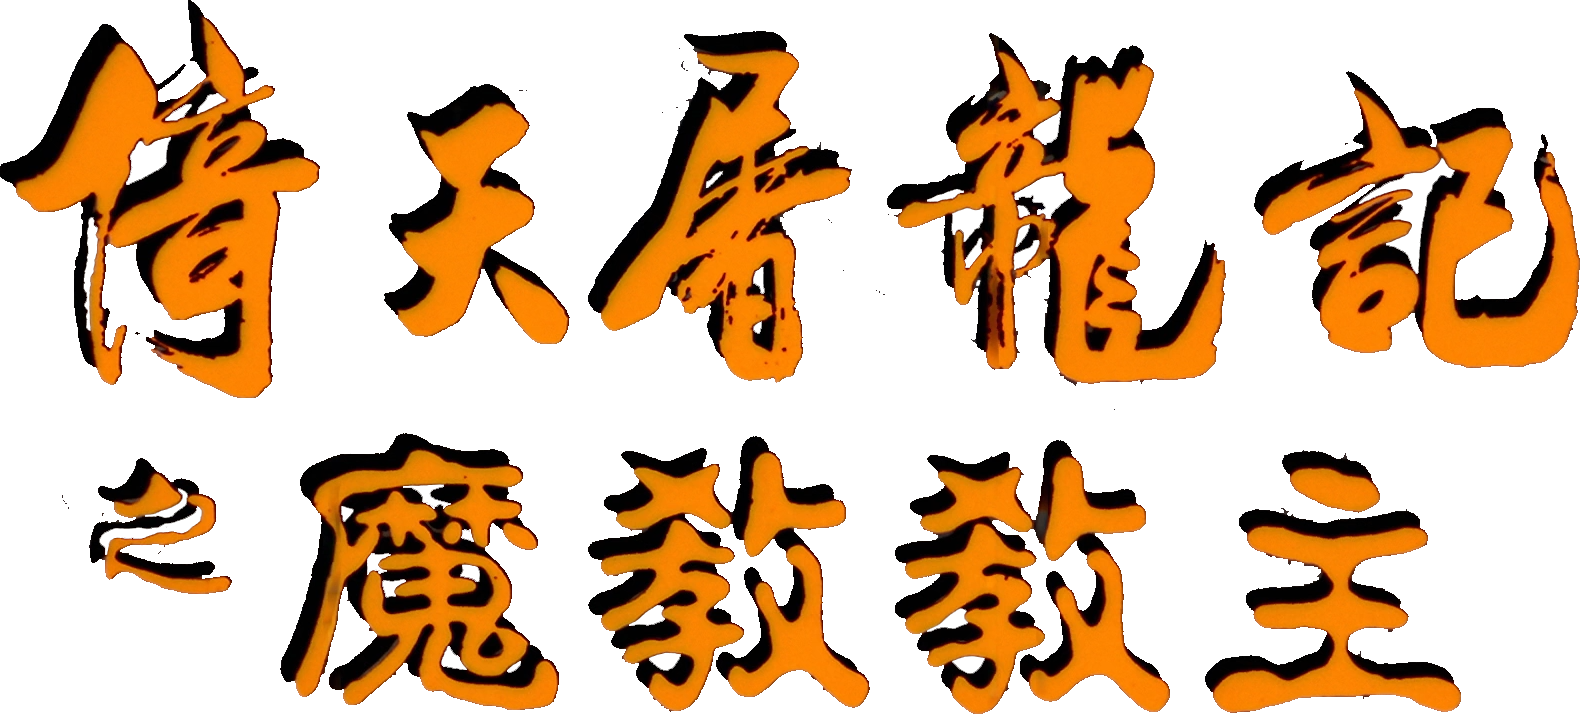 倚天屠龍記
之魔教教主